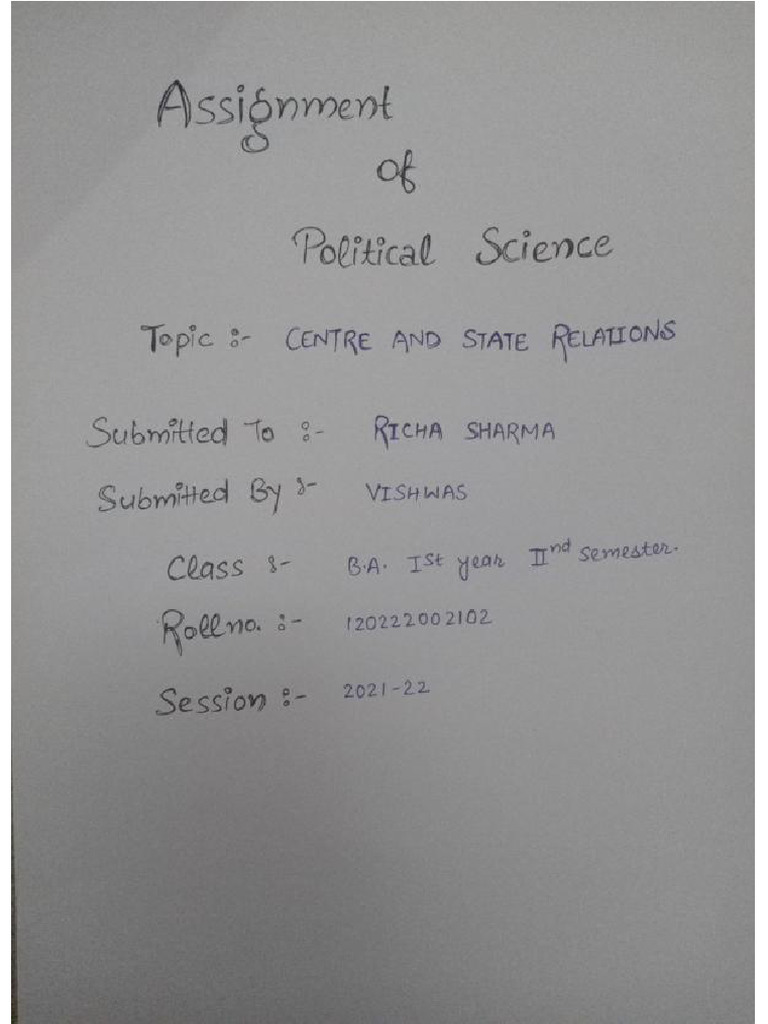 Assignment
of
Political Science
Topic :- CENTRE AND STATE RELATIONS
Submitted To :- RICHA SHARMA
Submitted By :- VISHWAS
Class :- B.A. Ist year IInd semester.
Roll no. :- 120222002102
Session :- 2021-22